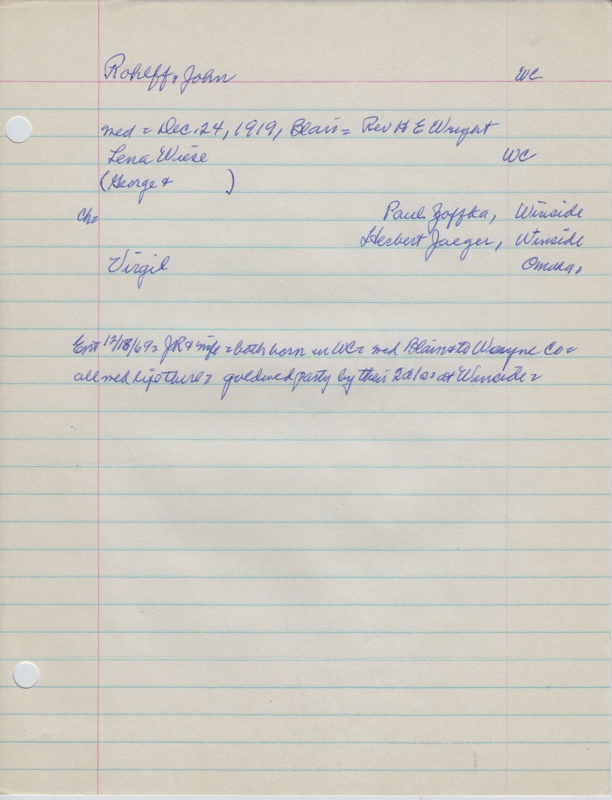 Rohlff, John WC
med = Dec. 24, 1919, Blair = Rev H E Wright
Lena Wiese WC
(George & )
Ch= Paul Zoffka, Winside
Herbert Jaeger, Winside
Virgil Omaha,
Ent 12/18/69= JR & wife = both born in WC= med Blair & to Wayne Co=
all med life there= goldwed party by their 2d/s= at Winside=